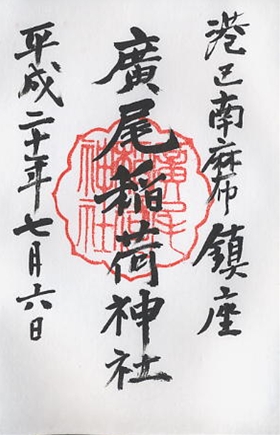 港区南麻布鎮座
廣尾稲荷神社
平成二十年七月六日
廣尾
稲荷
神社